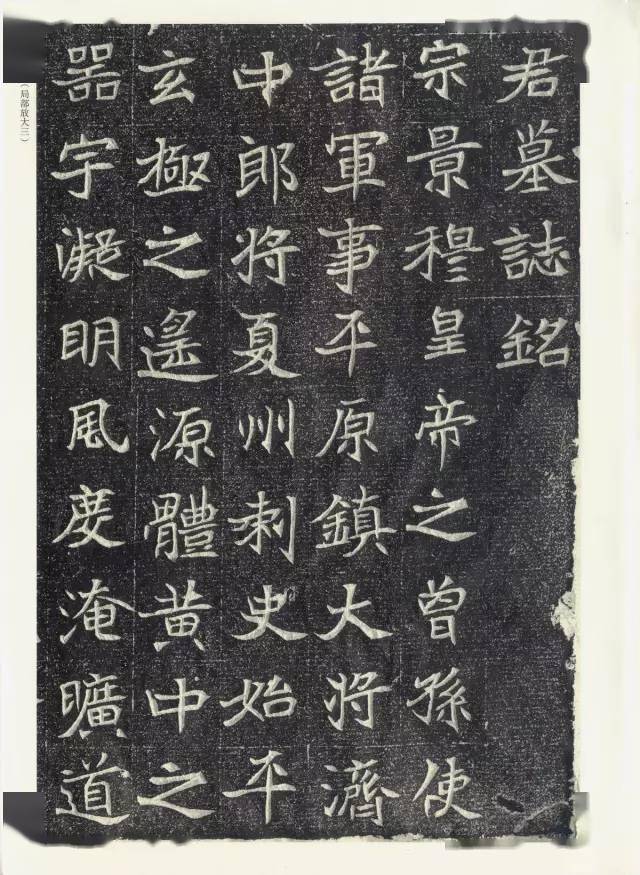 君墓誌銘
宗景穆皇帝之曾孫使
諸軍事平原鎮大將濟
中郎將夏州刺史始平
玄極之遙源體黃中之
器宇凝明風度淹曠道
（局部放大三）